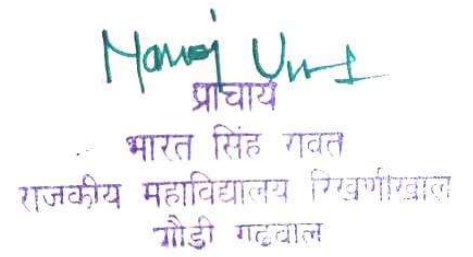 Manoj
प्राचार्य
भारत सिंह रावत
राजकीय महाविद्यालय रिखणीखाल
पौड़ी गढवाल